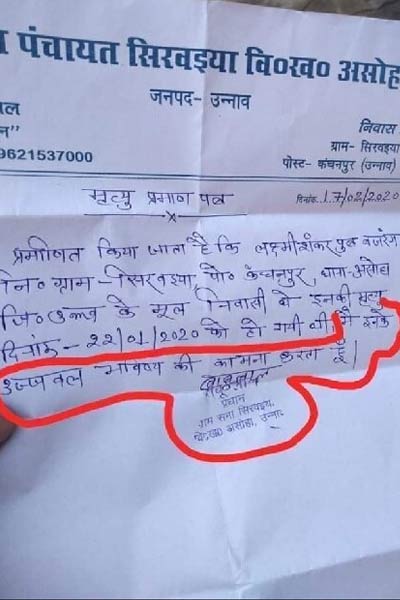 पंचायत सिरवइया वि०ख० असोहा
जनपद- उन्नाव
निवास
ग्राम- सिरवइया
पोस्ट- कंचनपुर (उन्नाव)
9621537000
मृत्यु प्रमाण पत्र
दिनांक 17/02/2020
प्रमाणित किया जाता है कि लक्ष्मीशंकर पुत्र बजरंग
नि० ग्राम- सिरवइया, पो० कंचनपुर, थाना- असोहा
जि० उन्नाव के मूल निवासी थे इनकी मृत्यु
दिनांक- 22/01/2020 को हो गयी थी, मैं इनके
उज्जवल भविष्य की कामना करता हूँ।
प्रधान
ग्राम सभा सिरवइया,
वि०ख० असोहा, उन्नाव